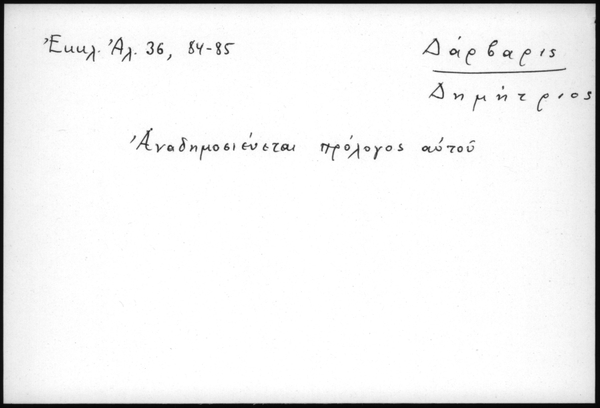 Ἐκκλ. Ἀλ. 36, 84-85
Δάρβαρις
Δημήτριος
Ἀναδημοσιεύεται πρόλογος αὐτοῦ